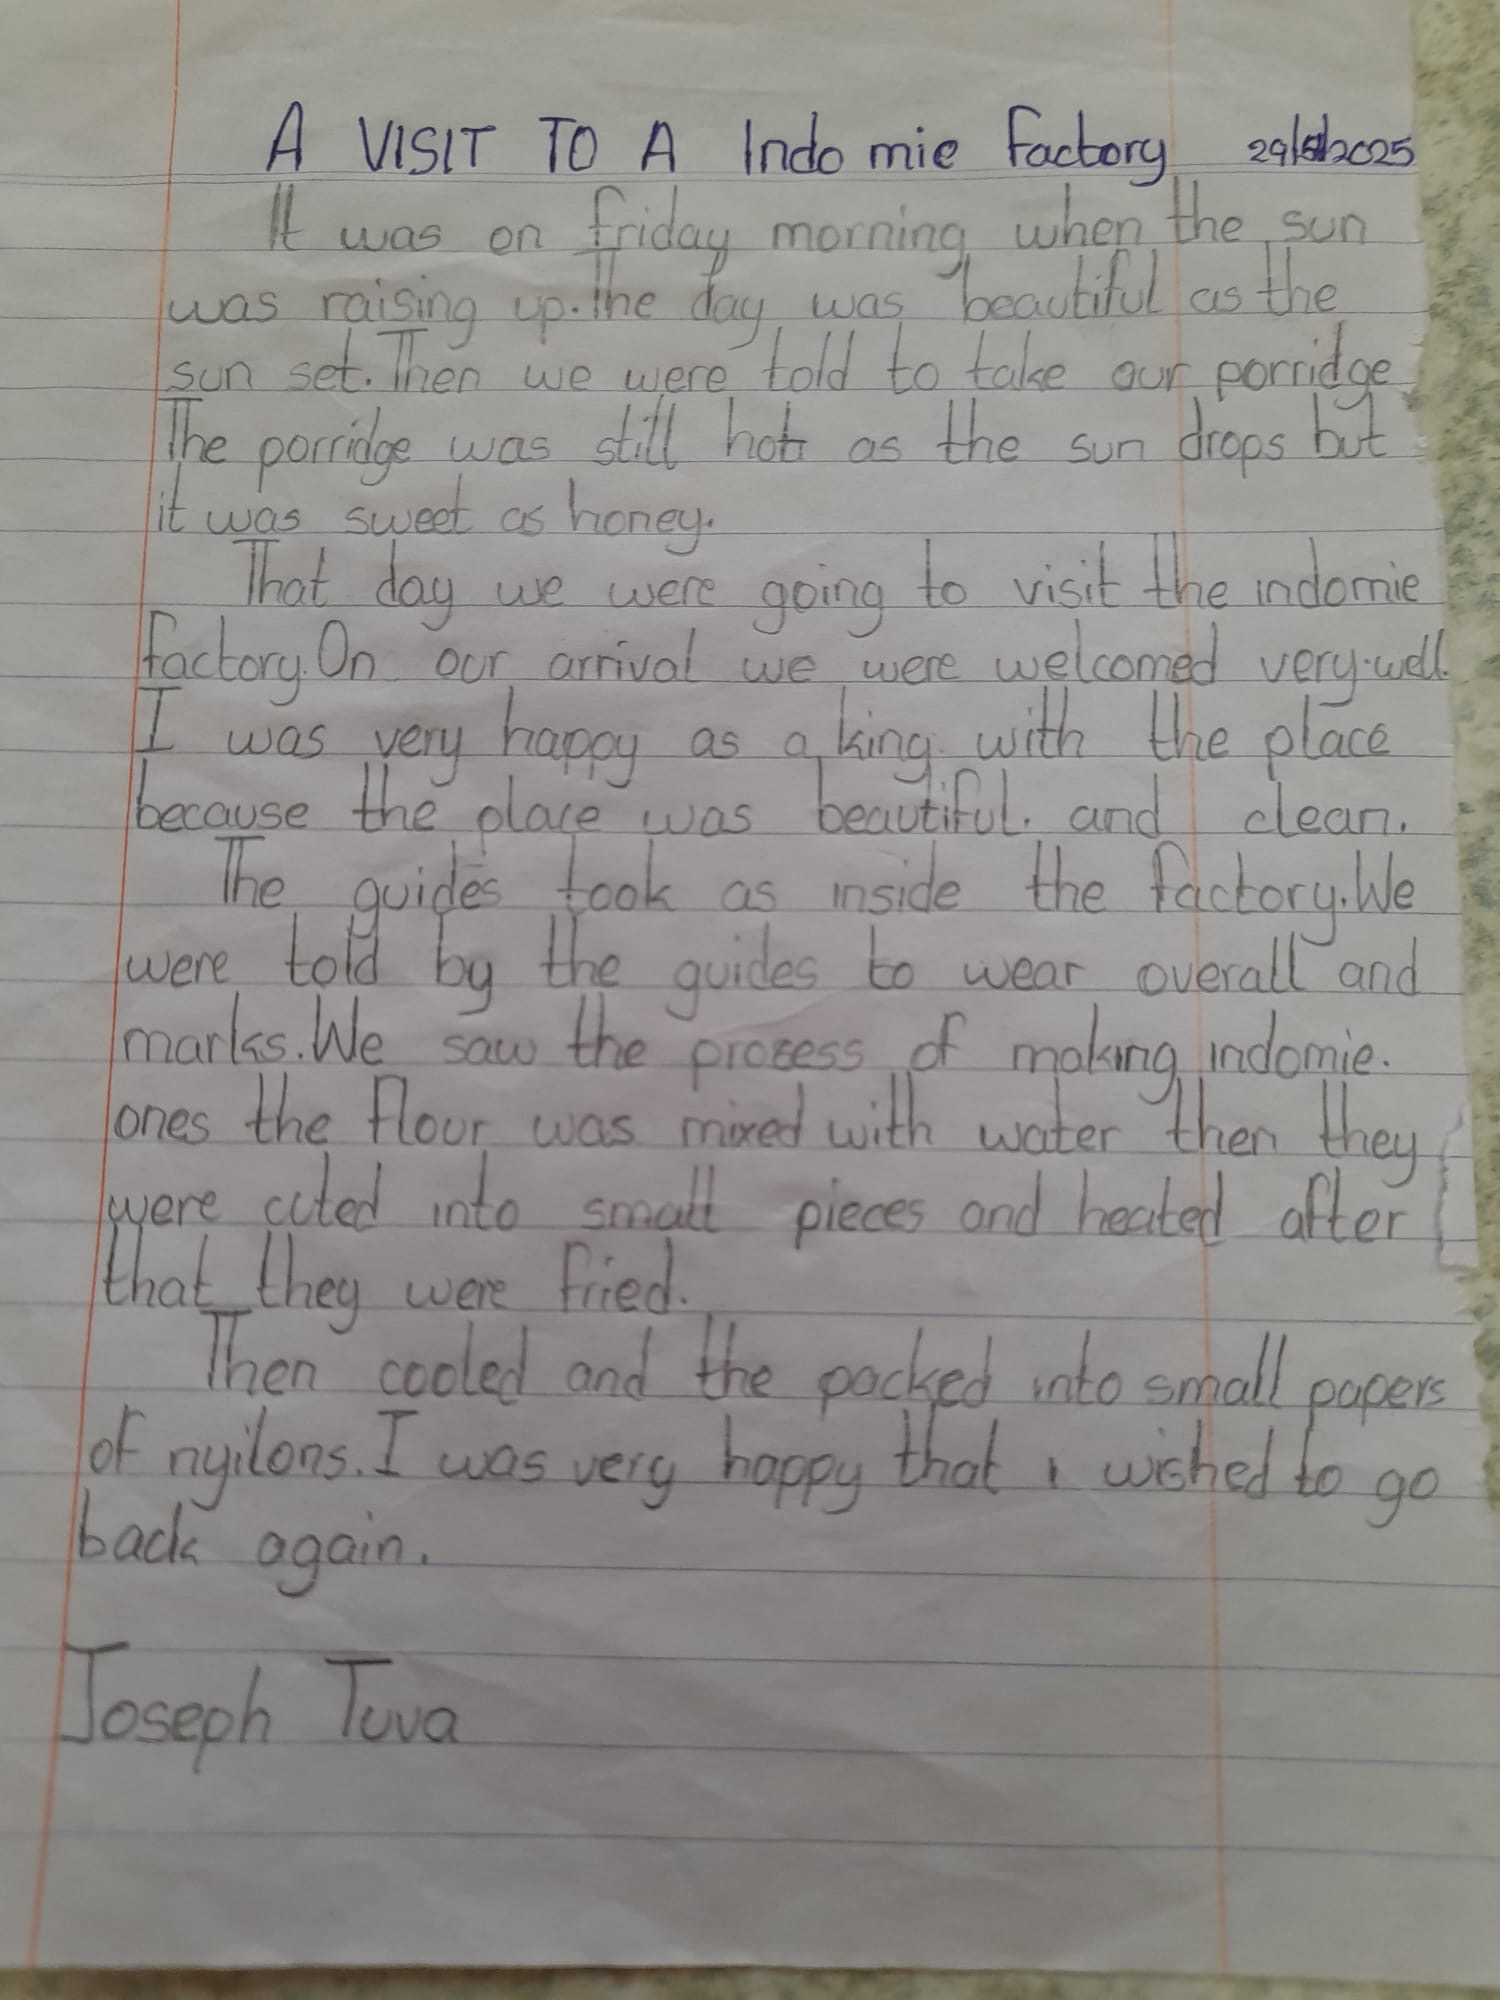 A VISIT TO A Indomie Factory 29/5/2025
It was on friday morning when the sun
was raising up. The day was beautiful as the
sun set. Then we were told to take our porridge
The porridge was still hot as the sun drops but
it was sweet as honey.
That day we were going to visit the indomie
factory. On our arrival we were welcomed very well.
I was very happy as a king. with the place
because the place was beautiful. and clean.
The guides took as inside the factory. We
were told by the guides to wear overall and
marks. We saw the prosess of making indomie.
ones the flour was mixed with water then they
were cuted into small pieces and heated after
that they were fried.
Then cooled and the packed into small papers
of nyilons. I was very happy that i wished to go
back again.
Joseph Tuva